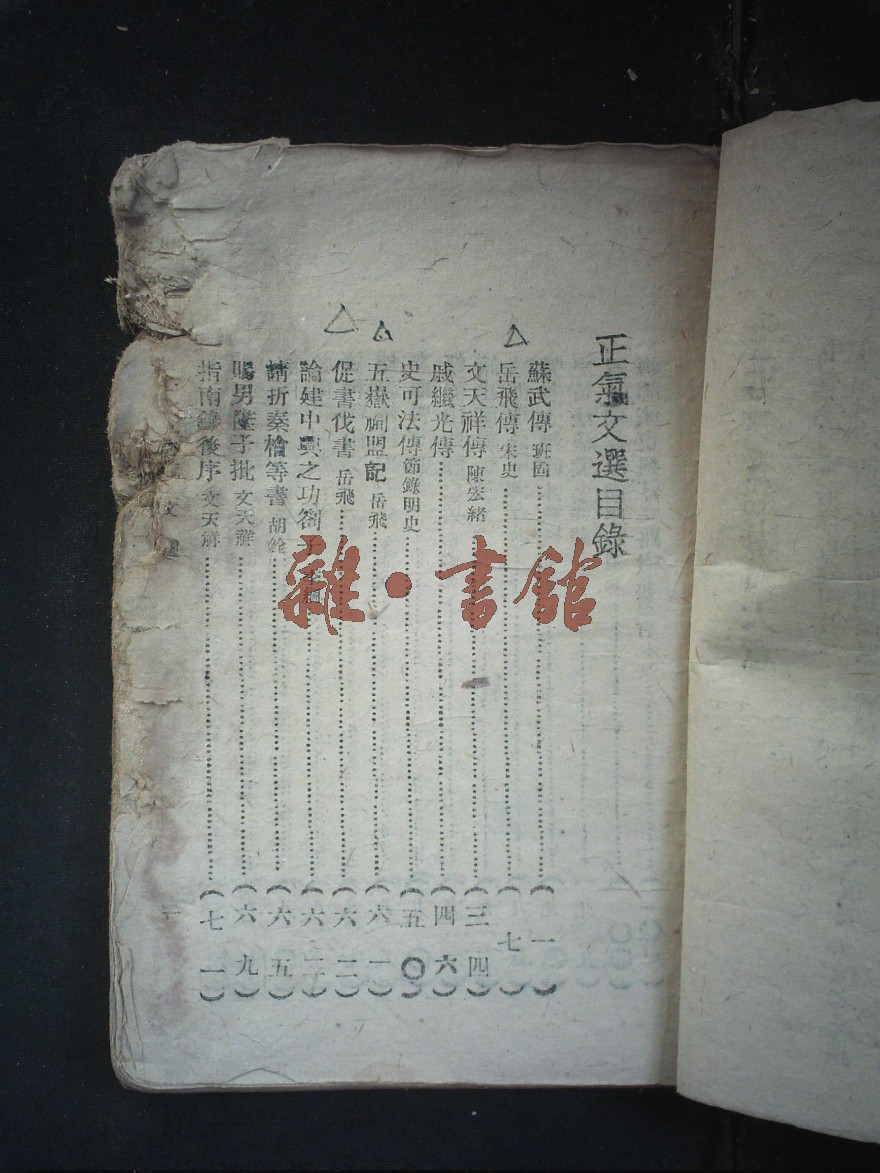 正氣文選目錄
蘇武傳 班固……（一）
岳飛傳 宋史……（七）
文天祥傳 陳宏緒……（三四）
戚繼光傳……（四六）
史可法傳 節錄明史……（五〇）
五嶽祠盟記 岳飛……（六一）
促書伐書 岳飛……（六二）
論建中興之功劄子……（六二）
請折秦檜等書 胡銓……（六五）
賜男陞子批 文天祥……（六九）
指南錄後序 文天祥……（七一）
文選
雜·書館